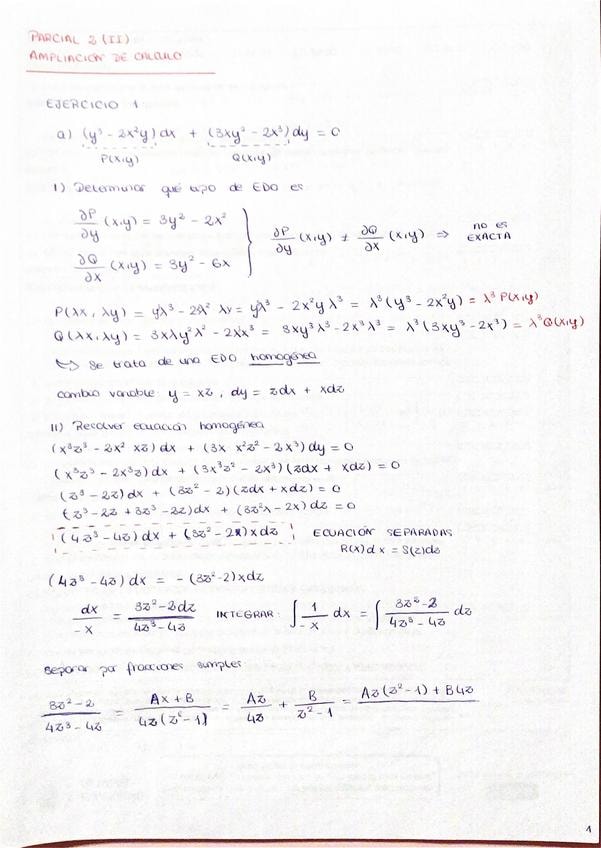 PARCIAL 2 (II)
AMPLIACIÓN DE CALCULO
EJERCICIO 1
a) (y³ - 2x²y) dx + (3xy² - 2x³) dy = 0
P(x,y) Q(x,y)
I) Determinar qué tipo de EDO es
∂P/∂y (x,y) = 3y² - 2x²
∂Q/∂x (x,y) = 3y² - 6x
∂P/∂y (x,y) ≠ ∂Q/∂x (x,y) ⇒ NO ES EXACTA
P(λx, λy) = y³λ³ - 2λ² λy = y³λ³ - 2x²y λ³ = λ³ (y³ - 2x²y) = λ³ P(x,y)
Q(λx, λy) = 3xλy²λ² - 2λ³x³ = 3xy³λ³ - 2x³λ³ = λ³ (3xy³ - 2x³) = λ³ Q(x,y)
↳ Se trata de una EDO homogénea
cambio variable: y = xz, dy = zdx + xdz
II) Resolver ecuación homogénea
(x³z³ - 2x² xz) dx + (3x x²z² - 2x³) dy = 0
(x³z³ - 2x³z) dx + (3x³z² - 2x³) (zdx + xdz) = 0
(z³ - 2z) dx + (3z² - 2) (zdx + xdz) = 0
(z³ - 2z + 3z³ - 2z) dx + (3z²x - 2x) dz = 0
(4z³ - 4z) dx + (3z² - 2) x dz ECUACIÓN SEPARADAS
R(x) dx = S(z) dz
(4z³ - 4z) dx = - (3z² - 2) x dz
dx/-x = 3z² - 2 dz/4z³ - 4z INTEGRAR: ∫ 1/-x dx = ∫ 3z² - 2/4z³ - 4z dz
Separar por fracciones simples
3z² - 2/4z³ - 4z = Ax + B/4z(z² - 1) = Az/4z + B/z² - 1 = Az(z² - 1) + B4z
1